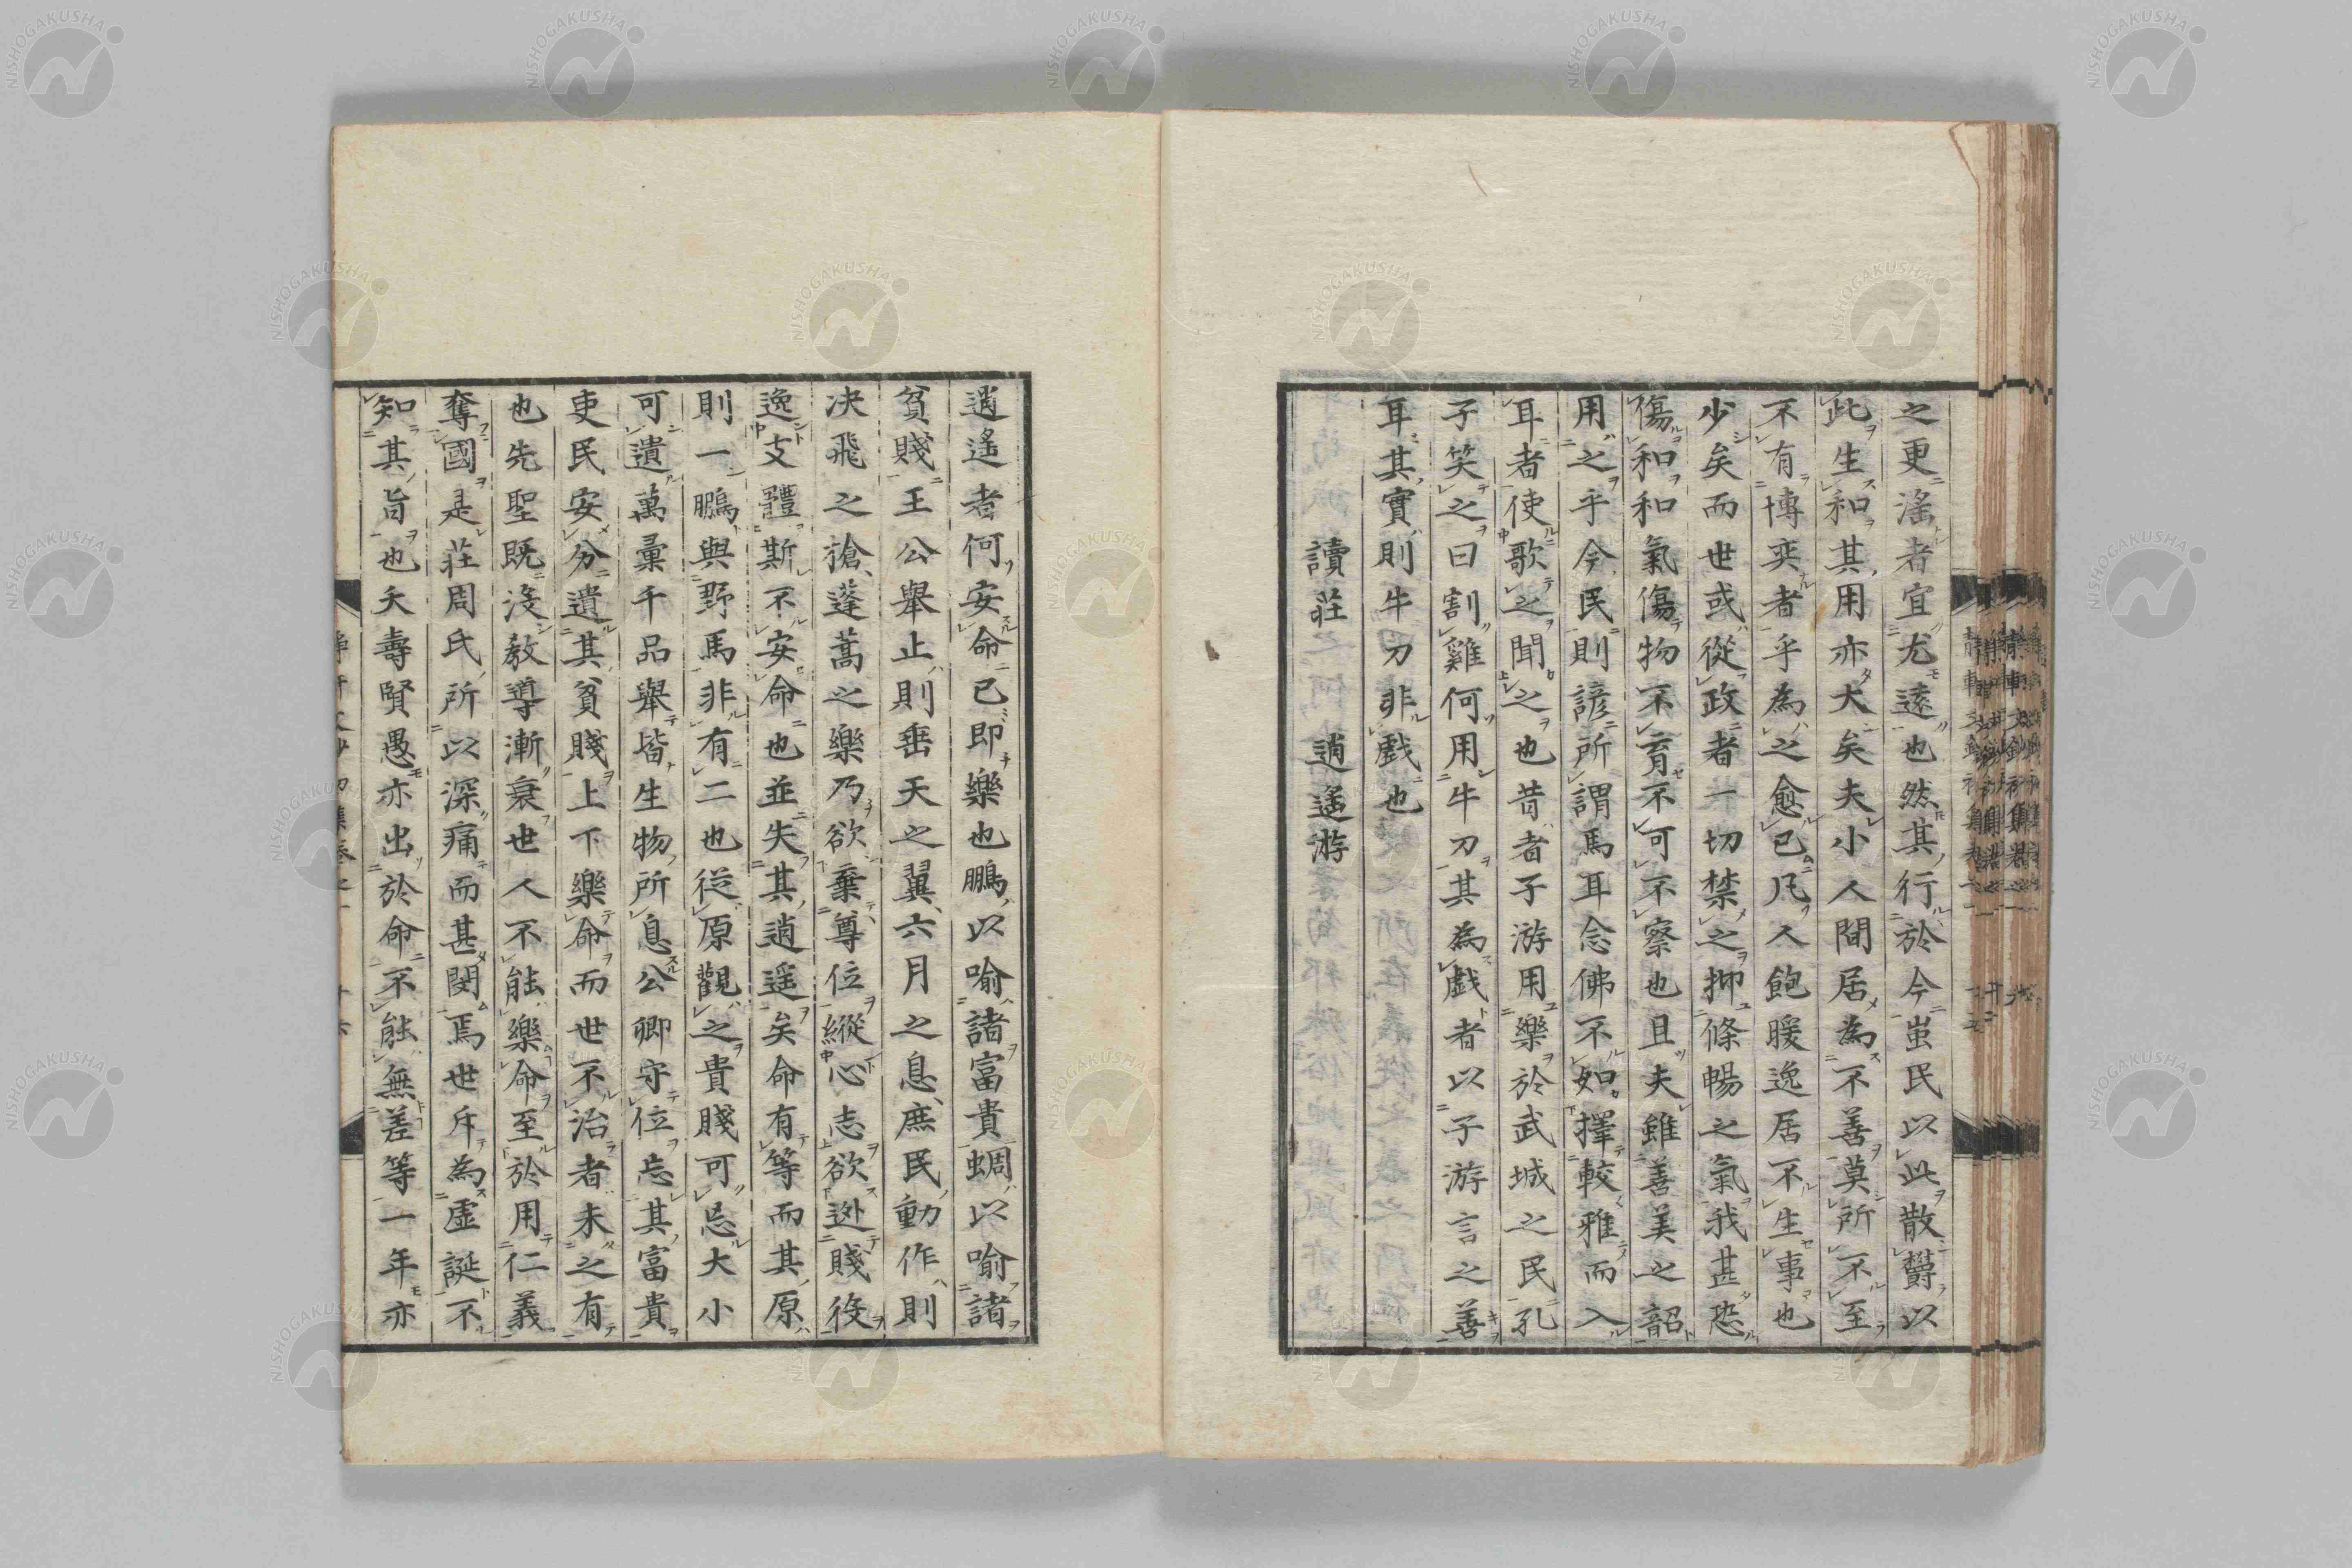 之更滛者宜尤遠也然其行於今蚩民以此散欝以
此生和其用亦大矣夫小人間居為不善莫所不至
不有博奕者乎為之愈已凡人飽暖逸居不生事也
少矣而世或從政者一切禁之抑條暢之氣我甚恐
傷和和氣傷物不育不可不察也且夫雖善美之韶
用之乎今民則諺所謂馬耳念佛不如擇較雅而入
耳者使歌之聞之也昔者子游用樂於武城之民孔
子笑之曰割雞何用牛刀其為戲者以子游言之善
耳其實則牛刀非戲也
讀莊 逍遙游
逍遙者何安命已即樂也鵬以喻諸富貴蜩以喻諸
貧賤王公舉止則垂天之翼六月之息庶民動作則
决飛之搶蓬蒿之樂乃欲棄尊位縱心志欲迯賤役
逸支體斯不安命也並失其逍遥矣命有等而其原
則一鵬與野馬非有二也從原觀之貴賤可忌大小
可遺萬彙千品舉皆生物所息公卿守位忘其富貴
吏民安分遺其貧賤上下樂命而世不治者未之有
也先聖既沒教導漸衰世人不能樂命至於用仁義
奪國是莊周氏所以深痛而甚閔焉世斥為虛誕不
知其旨也夭壽賢愚亦出於命不能無差等一年亦